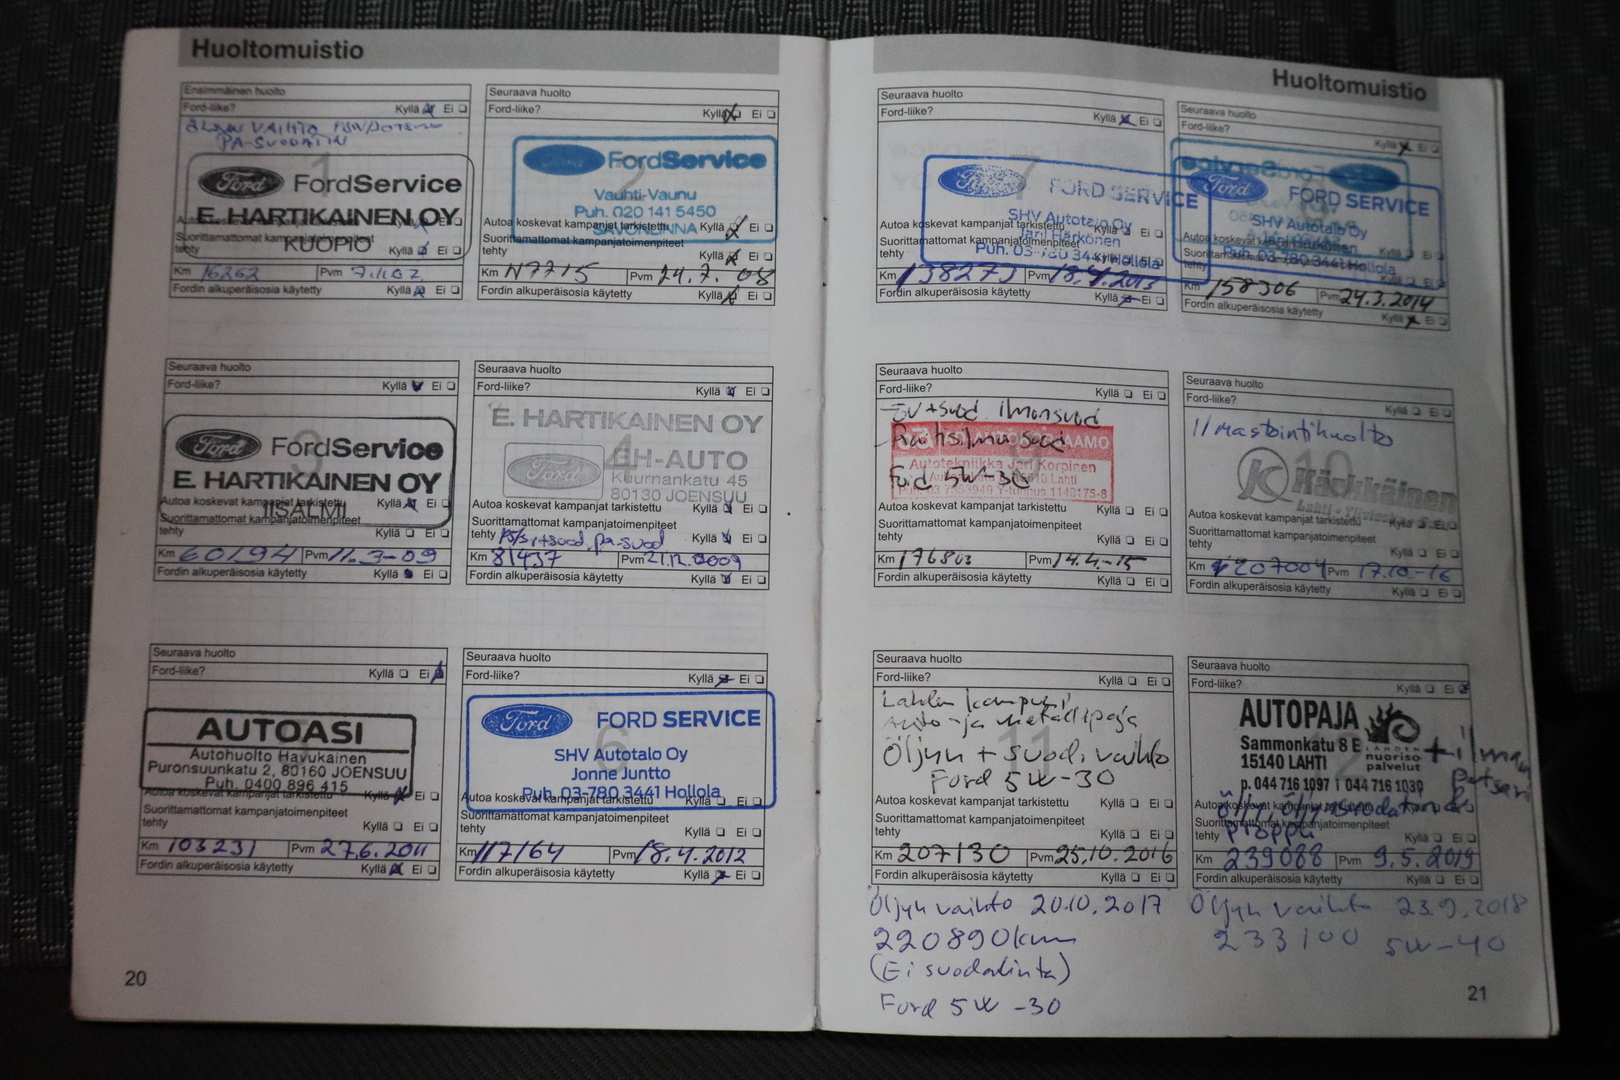 Huoltomuistio
Ensimmäinen huolto
Ford-liike? Kyllä Ei
PA-SUODATIN
1
Ford FordService
E. HARTIKAINEN OY
KUOPIO
Kyllä Ei
tehty Kyllä Ei
Km 16262 Pvm
Fordin alkuperäisosia käytetty Kyllä Ei
Seuraava huolto
Ford-liike? Kyllä Ei
2
FordService
Vauhti-Vaunu
Puh. 020 141 5450
SAVONLINNA
Autoa koskevat kampanjat tarkistettu Kyllä Ei
Suorittamattomat kampanjatoimenpiteet
tehty Kyllä Ei
Km 47715 Pvm 24.7. 08
Fordin alkuperäisosia käytetty Kyllä Ei
Seuraava huolto
Ford-liike? Kyllä Ei
3
Ford FordService
E. HARTIKAINEN OY
IISALMI
Autoa koskevat kampanjat tarkistettu Kyllä Ei
Suorittamattomat kampanjatoimenpiteet
tehty Kyllä Ei
Km 60194 Pvm 11.3-09
Fordin alkuperäisosia käytetty Kyllä Ei
Seuraava huolto
Ford-liike? Kyllä Ei
4
E. HARTIKAINEN OY
Ford EH-AUTO
Kuurnankatu 45
80130 JOENSUU
Autoa koskevat kampanjat tarkistettu Kyllä Ei
Suorittamattomat kampanjatoimenpiteet
tehty Kyllä Ei
Km 81437 Pvm 21.12.2009
Fordin alkuperäisosia käytetty Kyllä Ei
Seuraava huolto
Ford-liike? Kyllä Ei
AUTOASI
Autohuolto Havukainen
Puronsuunkatu 2, 80160 JOENSUU
Puh. 0400 896 415
Autoa koskevat kampanjat tarkistettu Kyllä Ei
Suorittamattomat kampanjatoimenpiteet
tehty Kyllä Ei
Km 103231 Pvm 27.6.2011
Fordin alkuperäisosia käytetty Kyllä Ei
Seuraava huolto
Ford-liike? Kyllä Ei
6
Ford FORD SERVICE
SHV Autotalo Oy
Jonne Juntto
Puh. 03-780 3441 Hollola
Autoa koskevat kampanjat tarkistettu Kyllä Ei
Suorittamattomat kampanjatoimenpiteet
tehty Kyllä Ei
Km 117164 Pvm 18.4.2012
Fordin alkuperäisosia käytetty Kyllä Ei
20
Huoltomuistio
Seuraava huolto
Ford-liike? Kyllä Ei
7
Ford FORD SERVICE
SHV Autotalo Oy
Jari Härkönen
Puh. 03-780 3441 Hollola
Autoa koskevat kampanjat tarkistettu Kyllä Ei
Suorittamattomat kampanjatoimenpiteet
tehty
Km 138273 Pvm 18.4.2013
Fordin alkuperäisosia käytetty Kyllä Ei
Seuraava huolto
Ford-liike? Kyllä Ei
Ford FORD SERVICE
SHV Autotalo Oy
Jari Härkönen
Puh. 03-780 3441 Hollola
Km 158306 Pvm 24.3.2014
Fordin alkuperäisosia käytetty Kyllä Ei
Seuraava huolto
Ford-liike? Kyllä Ei
ilmansuod
Raitisilma suod
Ford 5W-30
Autotekniikka Jari Korpinen
Lahti
Autoa koskevat kampanjat tarkistettu Kyllä Ei
Suorittamattomat kampanjatoimenpiteet
tehty Kyllä Ei
Km 176803 Pvm 14.4.-15
Fordin alkuperäisosia käytetty Kyllä Ei
Seuraava huolto
Ford-liike? Kyllä Ei
Ilmastointihuolto
10
Kärkkäinen
Lahti - Ylivieska
Autoa koskevat kampanjat tarkistettu Kyllä Ei
Suorittamattomat kampanjatoimenpiteet
tehty Kyllä Ei
Km 207004 Pvm 17.10.-16
Fordin alkuperäisosia käytetty Kyllä Ei
Seuraava huolto
Ford-liike? Kyllä Ei
11
Lahden kampusi
Auto- ja metallipaja
Öljyn + suod. vaihto
Ford 5W-30
Autoa koskevat kampanjat tarkistettu Kyllä Ei
Suorittamattomat kampanjatoimenpiteet
tehty Kyllä Ei
Km 207130 Pvm 25.10.2016
Fordin alkuperäisosia käytetty Kyllä Ei
Öljyn vaihto 20.10.2017
220890km
(Ei suodatinta)
Ford 5W-30
Seuraava huolto
Ford-liike? Kyllä Ei
12
AUTOPAJA
Sammonkatu 8 E
15140 LAHTI
LAHDEN
nuoriso-
palvelut
p. 044 716 1097 | 044 716 1039
Autoa koskevat kampanjat tarkistettu
Suorittamattomat kampanjatoimenpiteet
tehty proppu Kyllä Ei
Km 239088 Pvm 9.5.2019
Fordin alkuperäisosia käytetty Kyllä Ei
Öljyn vaihto 23.9.2018
233100 5W-40
21